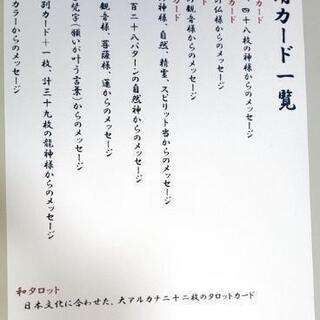 カード一覧
カード
、四十八枚の神様からのメッセージ
カード
の仏様からのメッセージ
カード
の観音様からのメッセージ
カード
の神様、自然、精霊、スピリット等からのメッセージ
百二十八パターンの自然神からのメッセージ
観音様、菩薩様、蓮からのメッセージ
梵字(願いが叶う言葉)からのメッセージ
別カード+一枚、計三十九枚の龍神様からのメッセージ
カラーからのメッセージ
和タロット
日本文化に合わせた、大アルカナ二十二枚のタロットカード